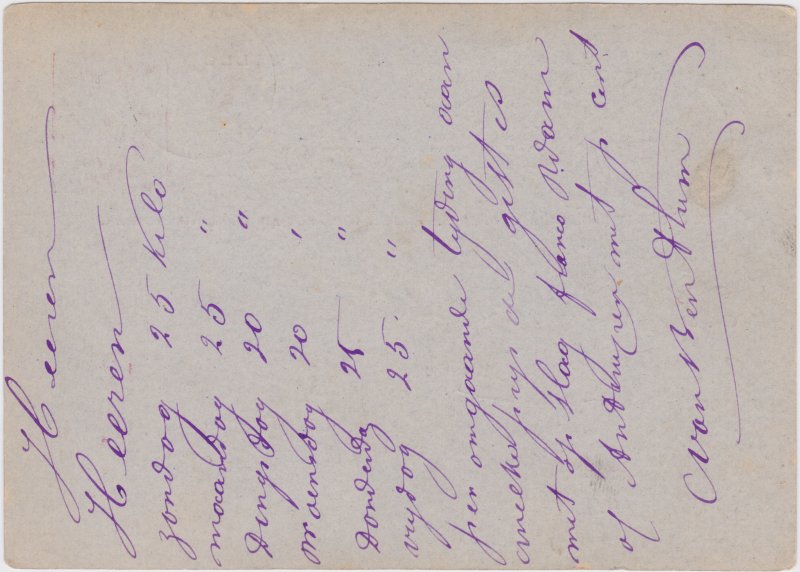 Heeren
Heeren
zondag 25 Kilo
maandag 25 "
Dingsdag 20 "
woensdag 20 '
Donderdag 25 "
vrydag 25 "
per omgaande tyding aan
welke prys de gist is
met op slag franco Rdam
of met p cent
van Benthum